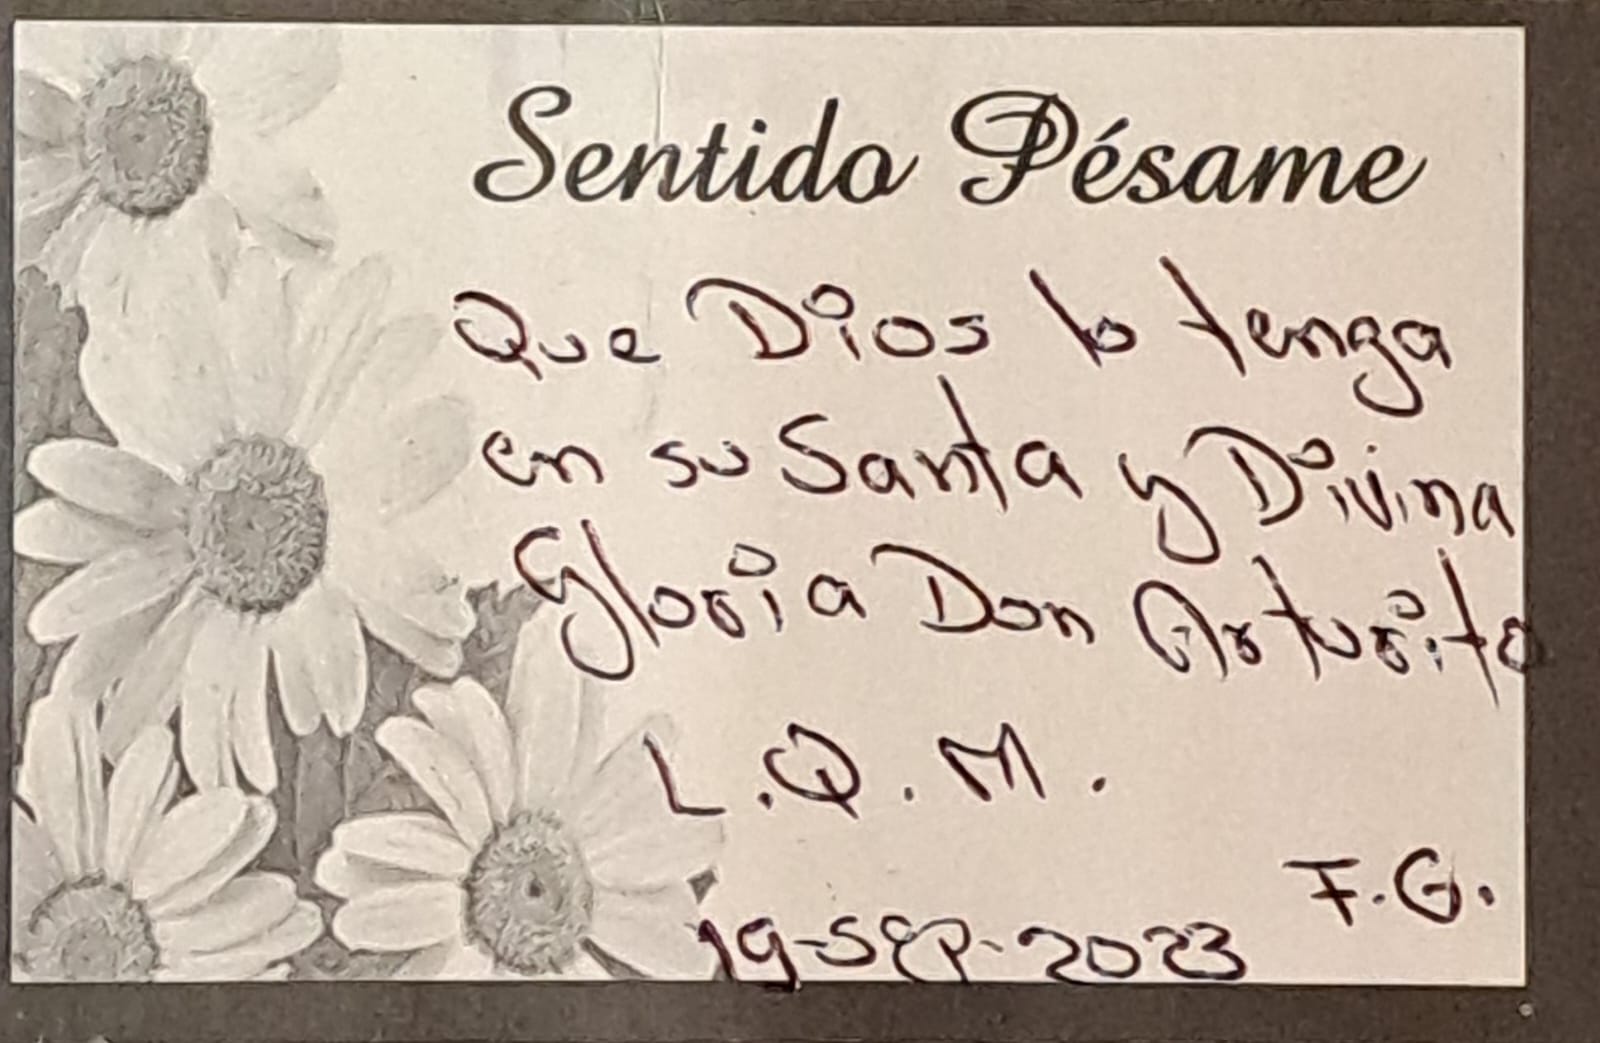 Sentido Pésame
Que Dios lo tenga
en su Santa y Divina
Gloria Don Arturito
L.Q.M.
F.G.
19-SEP-2023